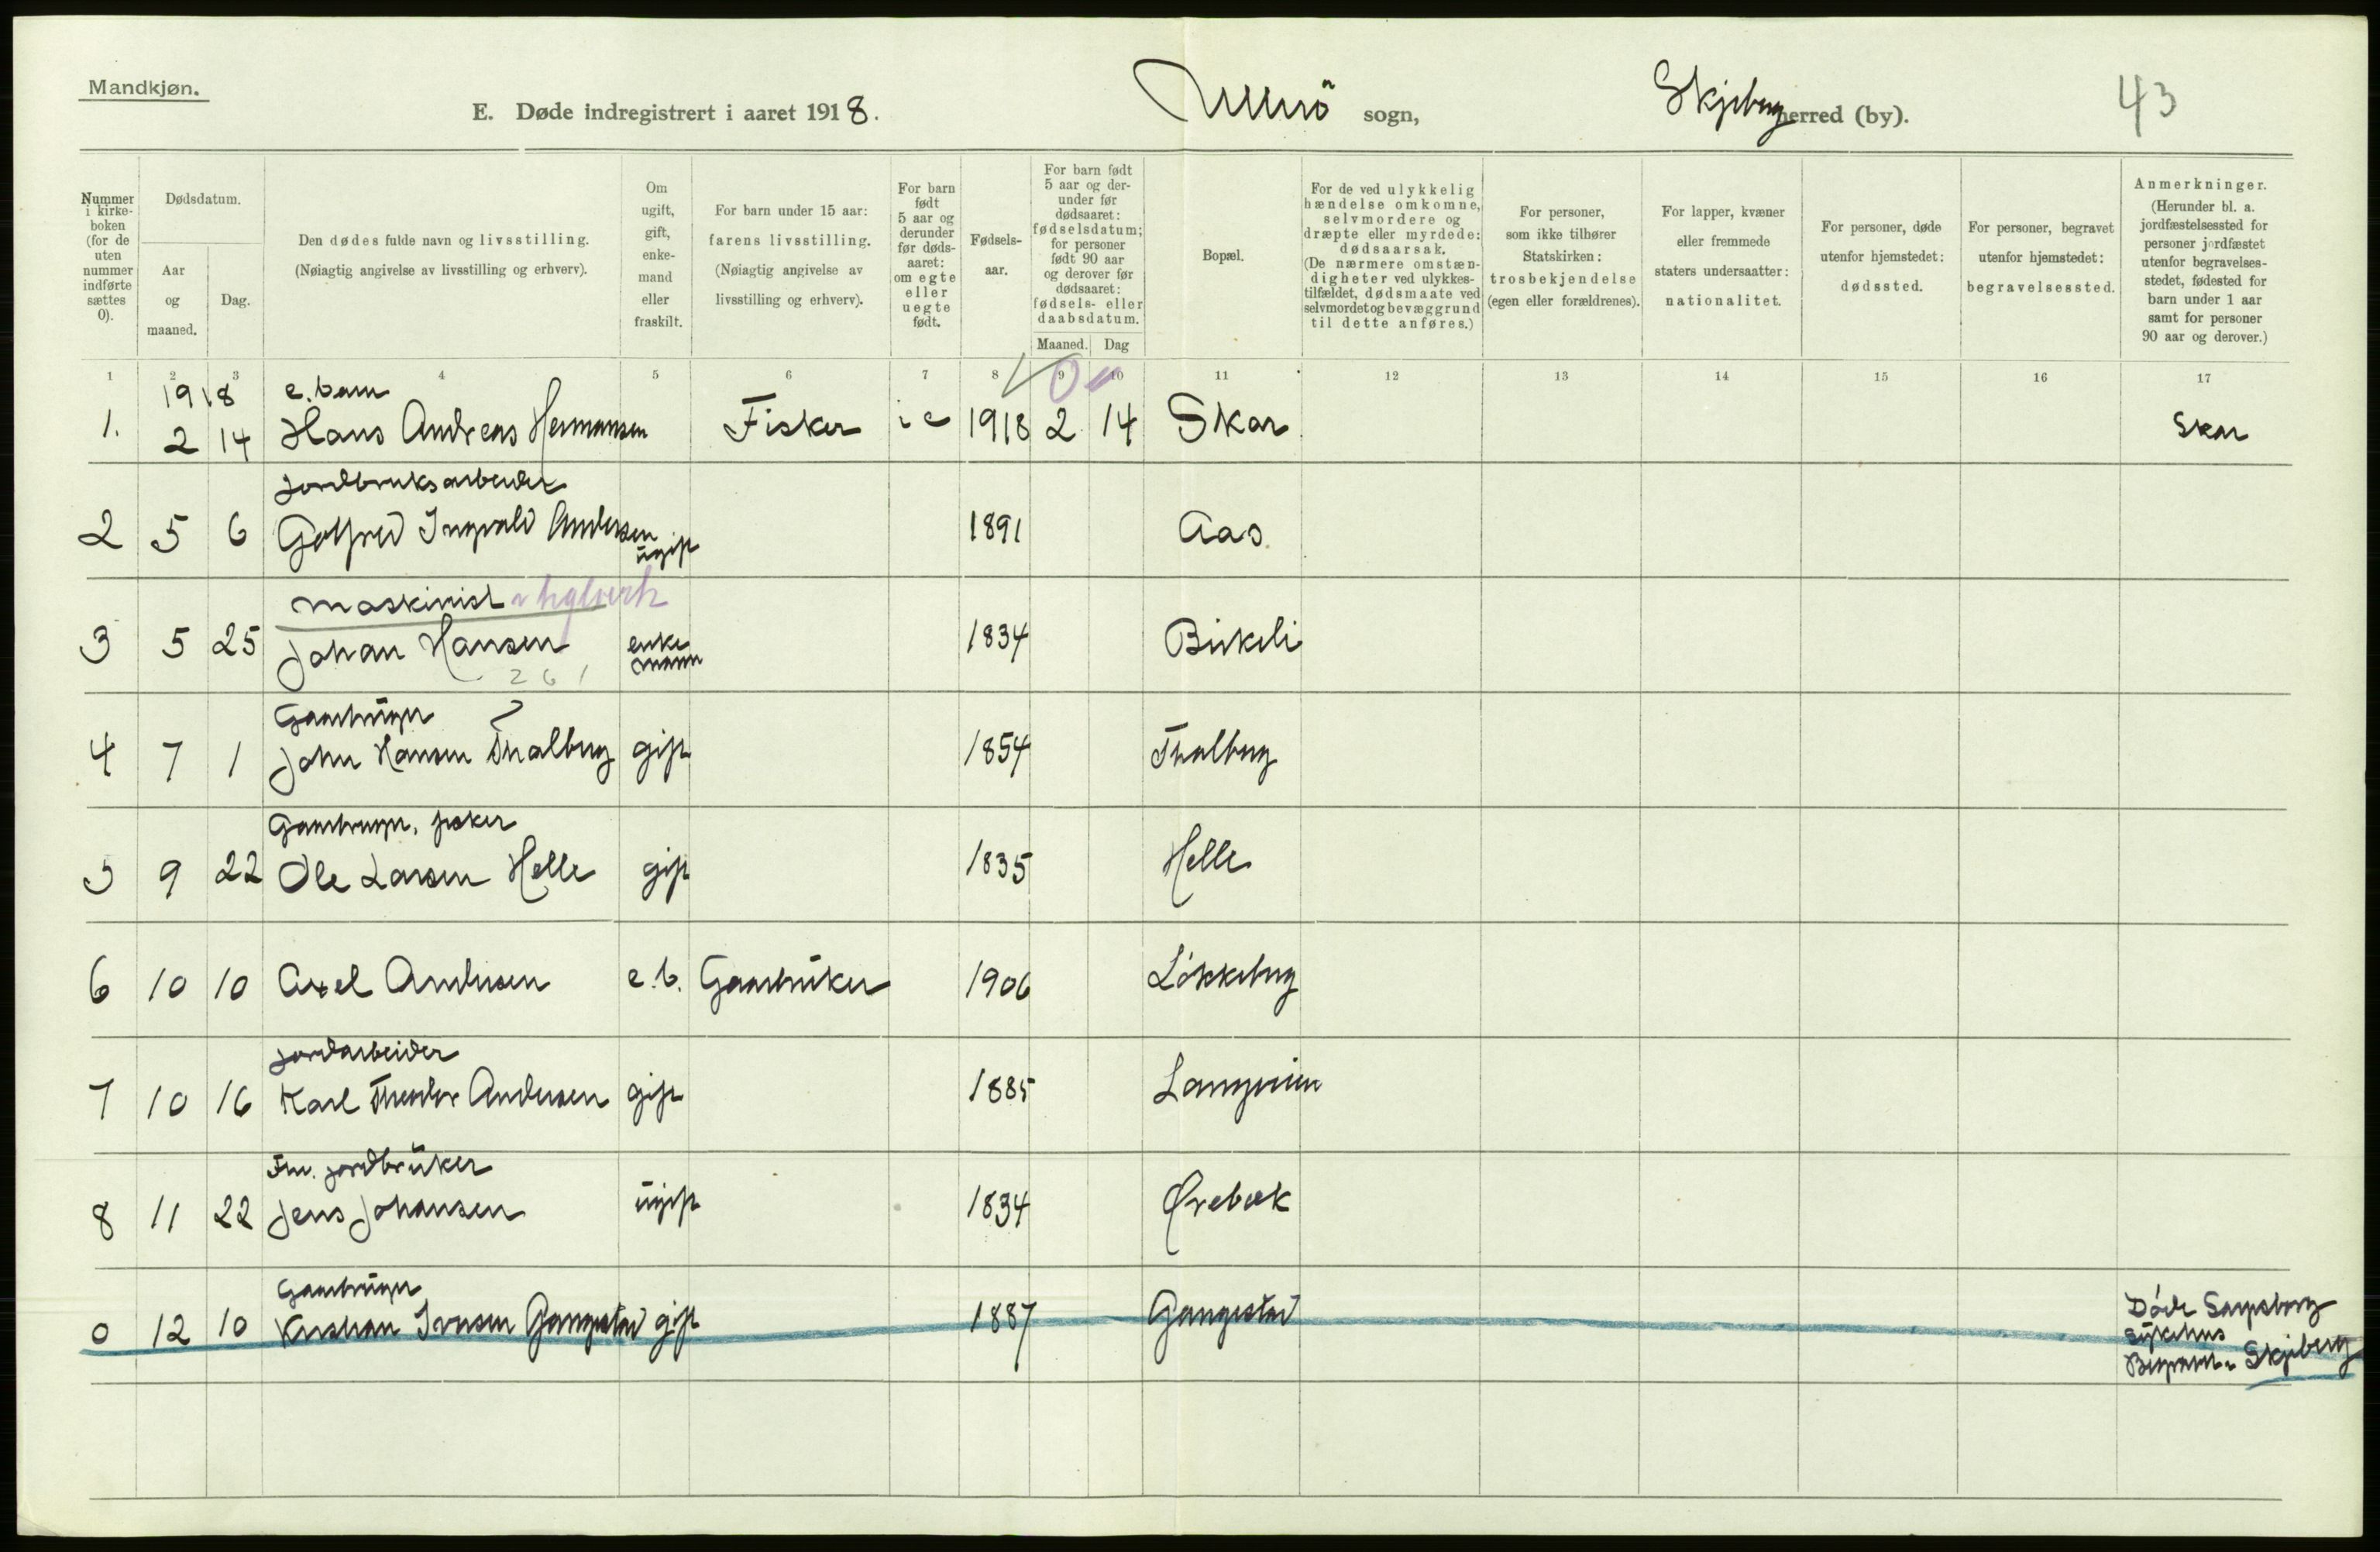 Mandkjøn.
E. Døde indregistrert i aaret 1918. Ullerö sogn, Skjeberg herred (by). 43
Nummer i kirke-boken (for de uten nummer indførte sættes 0).
Dødsdatum.
Aar og maaned.
Dag.
Den dødes fulde navn og livsstilling.
(Nøiagtig angivelse av livsstilling og erhverv).
Om ugift, gift, enke-mand eller fraskilt.
For barn under 15 aar: farens livsstilling.
(Nøiagtig angivelse av livsstilling og erhverv).
For barn født 5 aar og derunder før døds-aaret: om egte eller uegte født.
Fødsels-aar.
For barn født 5 aar og der-under før dødsaaret: fødselsdatum; for personer født 90 aar og derover før dødsaaret: fødsels- eller daabsdatum.
Maaned. Dag
Bopæl.
For de ved ulykkelig hændelse omkomne, selvmordere og dræpte eller myrdede: dødsaarsak.
(De nærmere omstæn-digheter ved ulykkes-tilfældet, dødsmaate ved selvmordet og bevæggrund til dette anføres.)
For personer, som ikke tilhører Statskirken: trosbekjendelse (egen eller forældrenes).
For lapper, kvæner eller fremmede staters undersaatter: nationalitet.
For personer, døde utenfor hjemstedet: dødssted.
For personer, begravet utenfor hjemstedet: begravelsessted.
Anmerkninger.
(Herunder bl. a. jordfæstelsessted for personer jordfæstet utenfor begravelses-stedet, fødested for barn under 1 aar samt for personer 90 aar og derover.)
1 2 3 4 5 6 7 8 9 10 11 12 13 14 15 16 17
1918 e. barn
1. 2 14 Hans Andreas Hermansen Fisker 1918 2 14 Skar Skar
Jordbruksarbeider
2 5 6 Gotfred Ingvald Andersen ugift 1891 Aas
maskinist
3 5 25 Johan Hansen enkemann 1834 Birkeli
261
Gaardbruger
4 7 1 John Hansen Thalberg gift 1854 Thalberg
Gaardbruger, fisker
5 9 22 Ole Larsen Helle gift 1835 Helle
6 10 10 Axel Andersen e.b. Gaardbruker 1906 Løkkeberg
jordarbeider
7 10 16 Karl Theodor Andersen gift 1885
Fhv. jordbruker
8 11 22 Jens Johansen ugift 1834 Ørebæk
Gaardbruger
0 12 10 Kristian Iversen Gangestad gift 1887 Gangestad
Døde Sarpsborg
sykehus
Begravet Skjeberg